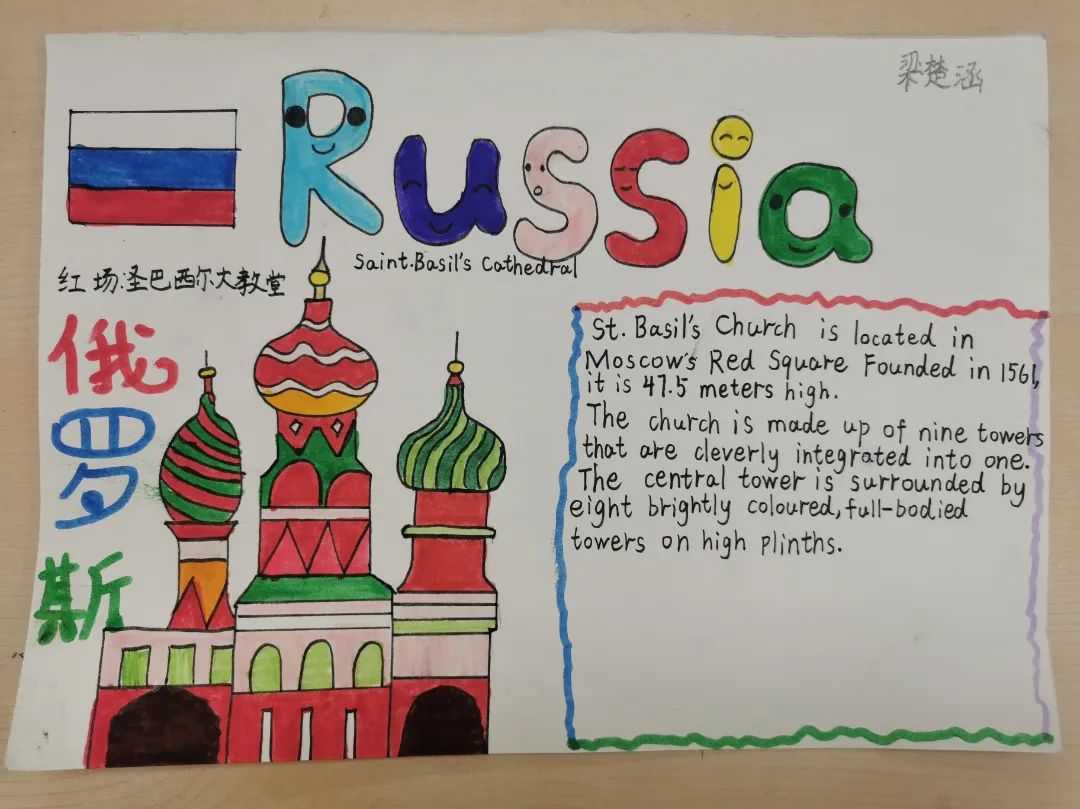 梁楚涵
Russia
Saint.Basil's Cathedral
红场:圣巴西尔大教堂
俄
罗
斯
St. Basil's Church is located in
Moscow's Red Square Founded in 1561,
it is 47.5 meters high.
The church is made up of nine towers
that are cleverly integrated into one.
The central tower is surrounded by
eight brightly coloured, full-bodied
towers on high plinths.